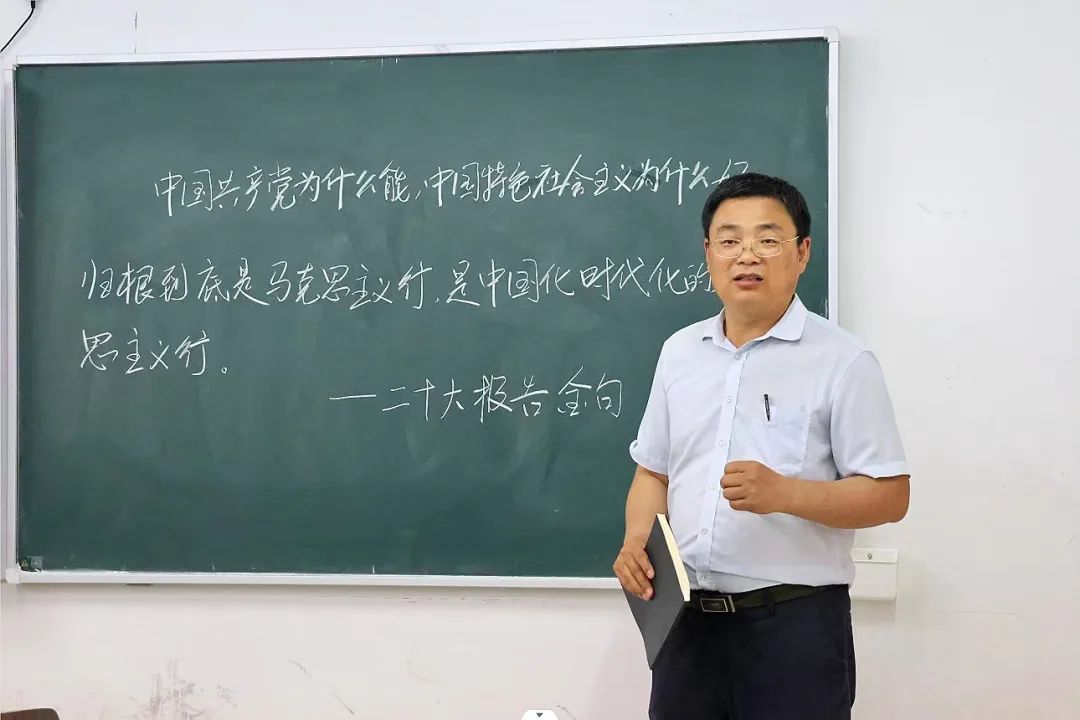 中国共产党为什么能,中国特色社会主义为什么
归根到底是马克思主义行,是中国化时代化的
思主义行。
——二十大报告金句